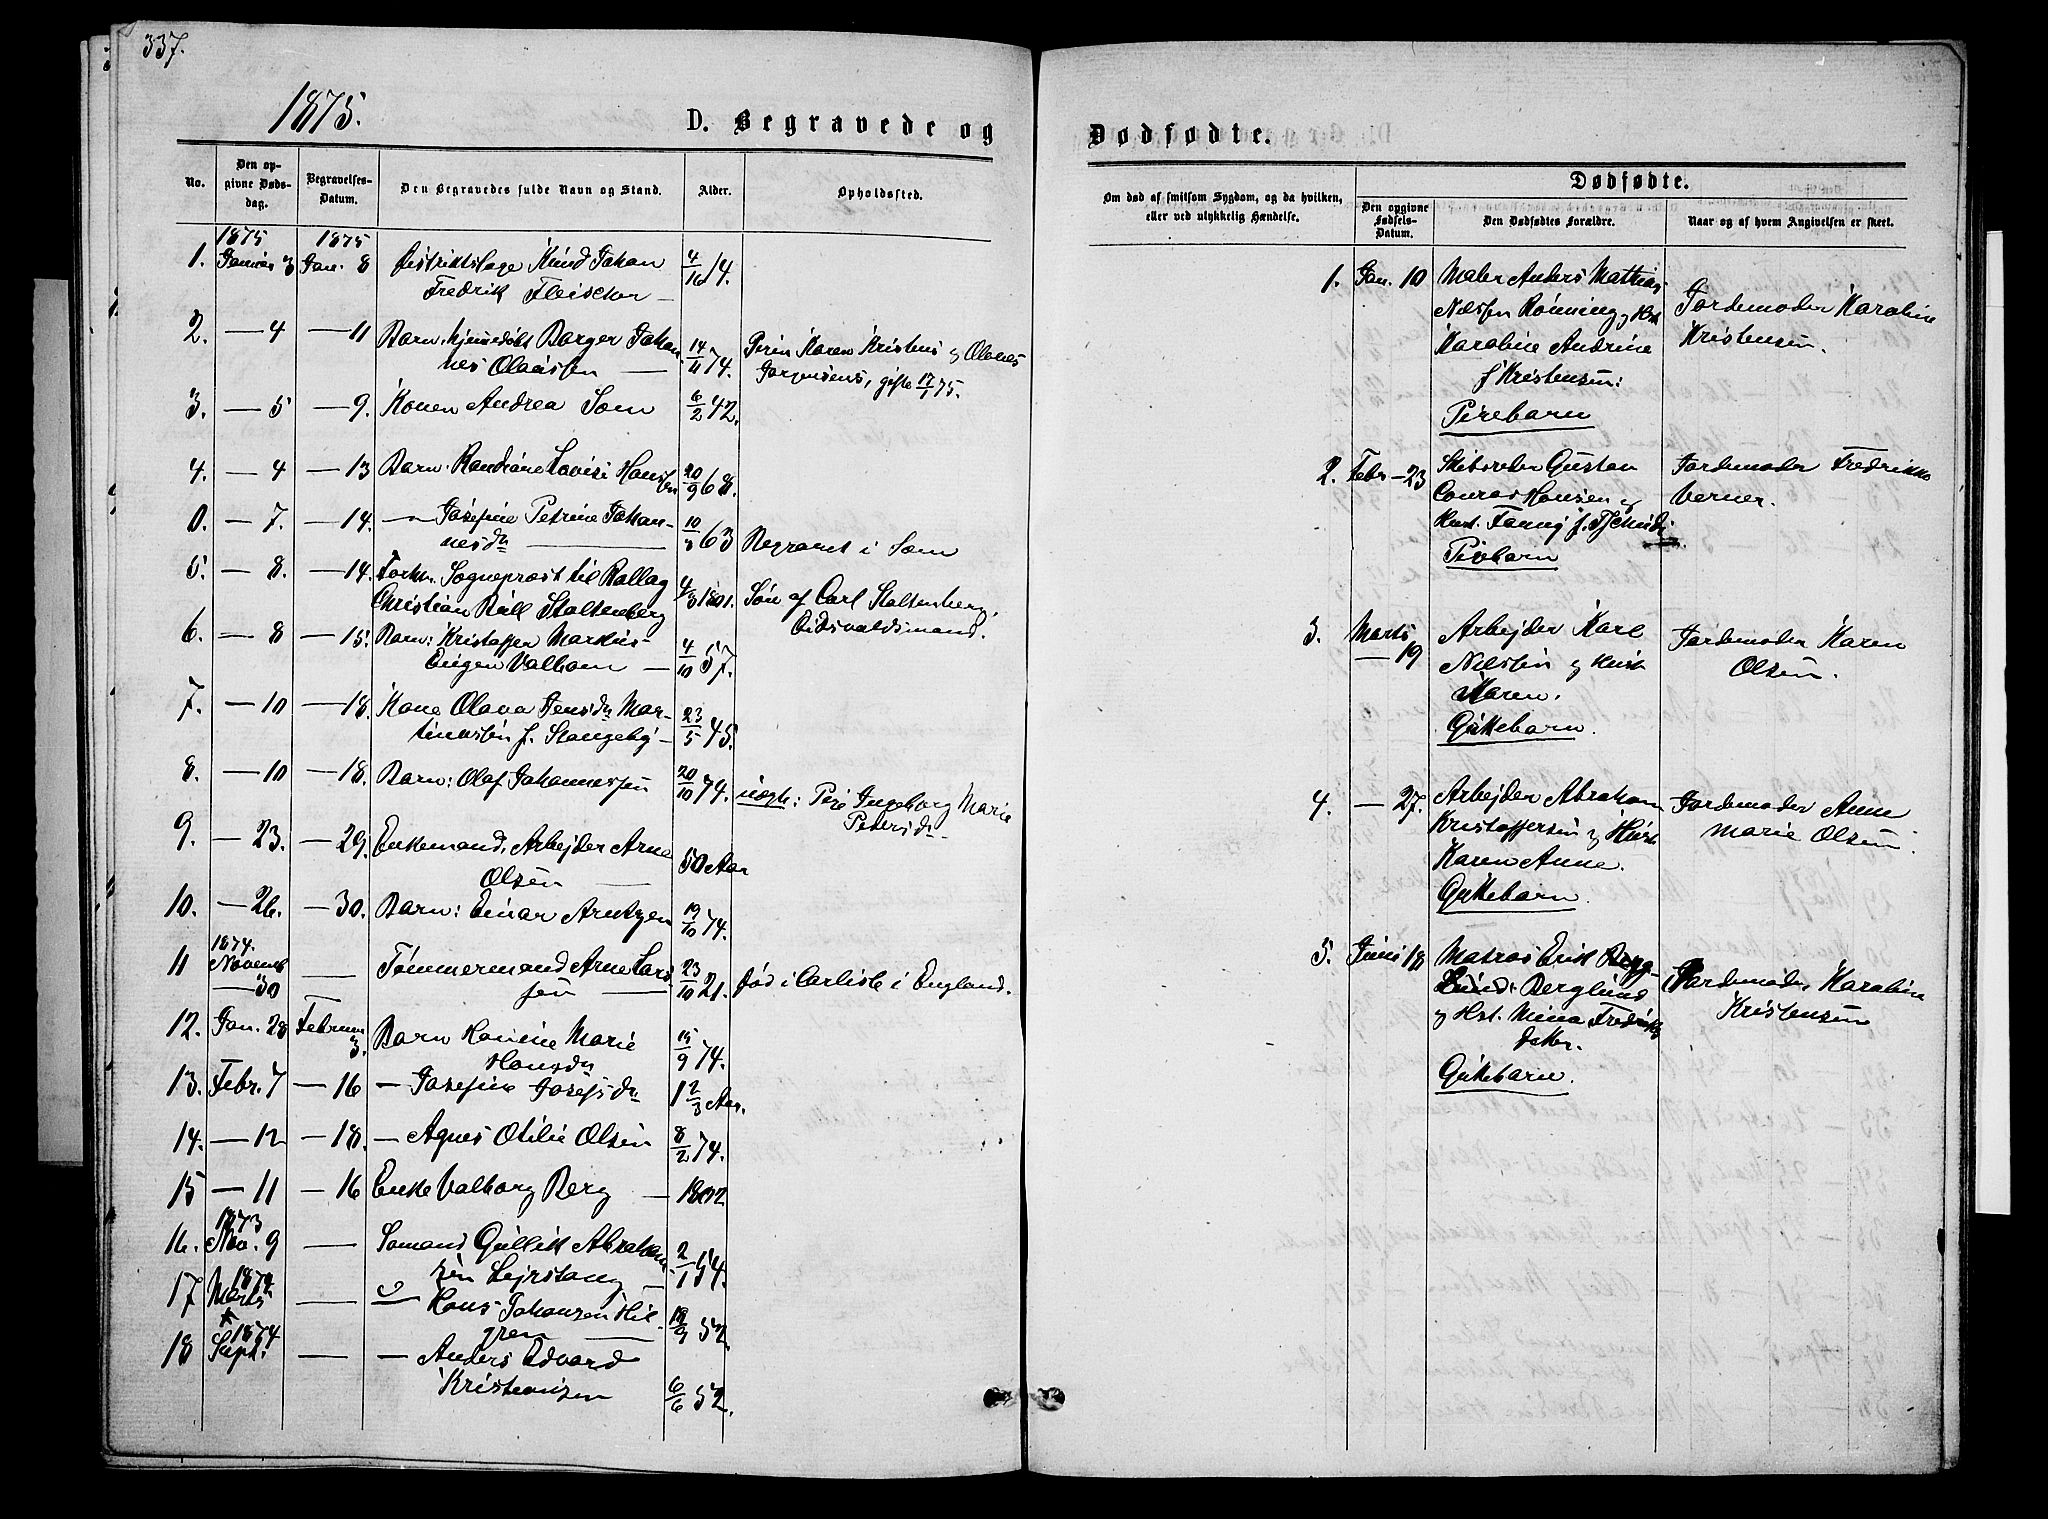 337.
1875.
D. Begravede og
No.
Den op-
givne Døds-
dag.
Begravelses-
Datum.
Den Begravedes fulde Navn og Stand.
Alder.
Opholdssted.
1875 1875
1. Januar 3 Jan. 8 Distriktslæge Knud Johan 4/10 14.
Fredrik Fleischer —
2. — 4 — 11 Barn, hjemmedøbt Borger Johan- 14/11 74. Perin Karen Kristens og Olaves
nes Olaussen — Jørgensens, gifte 17/1 75.
3. — 5 — 9. Konen Andrea Soem 6/2 42.
4. — 4 — 13 Barn: Randiane Lovise Hansen 20/9 68.
0. — 7. — 14. — Josefine Petrine Johan- 10/3 63 Begravet i Soem
nesdn —
5. — 8. — 14. Forhn. Sogneprest til Rollag 4/3 1801. Søn af Carl Stoltenberg,
Christian Stoltenberg Eidsvoldsmand.
6. — 8 — 15. Barn: Kristoffer Markus 4/10 57.
Eugen Valbom —
7. — 10 — 18. Kone Olava Jensdn Mar- 23/5 45.
tinussen f. Slangeby —
8. — 10 — 18. Barn: Olaf Johannessen 20/10 74. uægte: Pige Ingeborg Marie
Petersdn
9. — 23. — 29. Enkemand, Arbejder Arne 50 Aar
Olsen —
10. — 26. — 30. Barn: Einar Arntzen 19/10 74.
1874.
11 Novemb — Tømmermand Arne Lars- 23/10 21. død i Carlisle i England.
— 30 sen —
12. Jan. 28 Februar Barn Hanine Marie 15/9 74.
3. Hansdn
13. Febr. 7 — 16 — Josefine Josefsdn 1 2/3 Aar.
14. — 12 — 18. — Agnes Otilie Olsen 8/2 74.
15 — 11 — 16 Enke Valborg Berg — 1802
1873
16. Nov. 9 — Sømand Gullik Abraham- 2/1 54.
sen Lejrstang —
1874
17 Marts — — Hans Johansen Hil- 19/9 52
gren —
1874
18 Sept. — — Anders Edvard
Kristiansen 6/6 52.
Dødfødte.
Om død af smitsom Sygdom, og da hvilken,
eller ved ulykkelig Hændelse.
Dødfødte.
Den opgivne
Fødsels-
Datum.
Den Dødfødtes Forældre.
Naar og af hvem Angivelsen er skeet.
1. Jan. 10 Maler Anders Mathias
Nilssen Rønning og Hst Jordemoder Karoline
Karoline Andrine Kristensen.
f. Kristensen:
Pigebarn
2. Febr — 23 Skibsreder Gustav Jordemoder Fredrikke
Conrad Hansen og Verner.
Hust. Fanny f. Tschudi.
Pigebarn
3. Marts Arbejder Karl Jordemoder Karen
— 19 Nilssen og Hust Olsen.
Karen.
Guttebarn.
4. — 27. Arbejder Abraham Jordemoder Anne
Kristoffersen og Hust Marie Olsen.
Karen Anne.
Guttebarn.
5. Juni 18 Matros Erik
Berglund Jordemoder Karoline
og Hst. Mina Fredriks- Kristensen
datter.
Guttebarn.